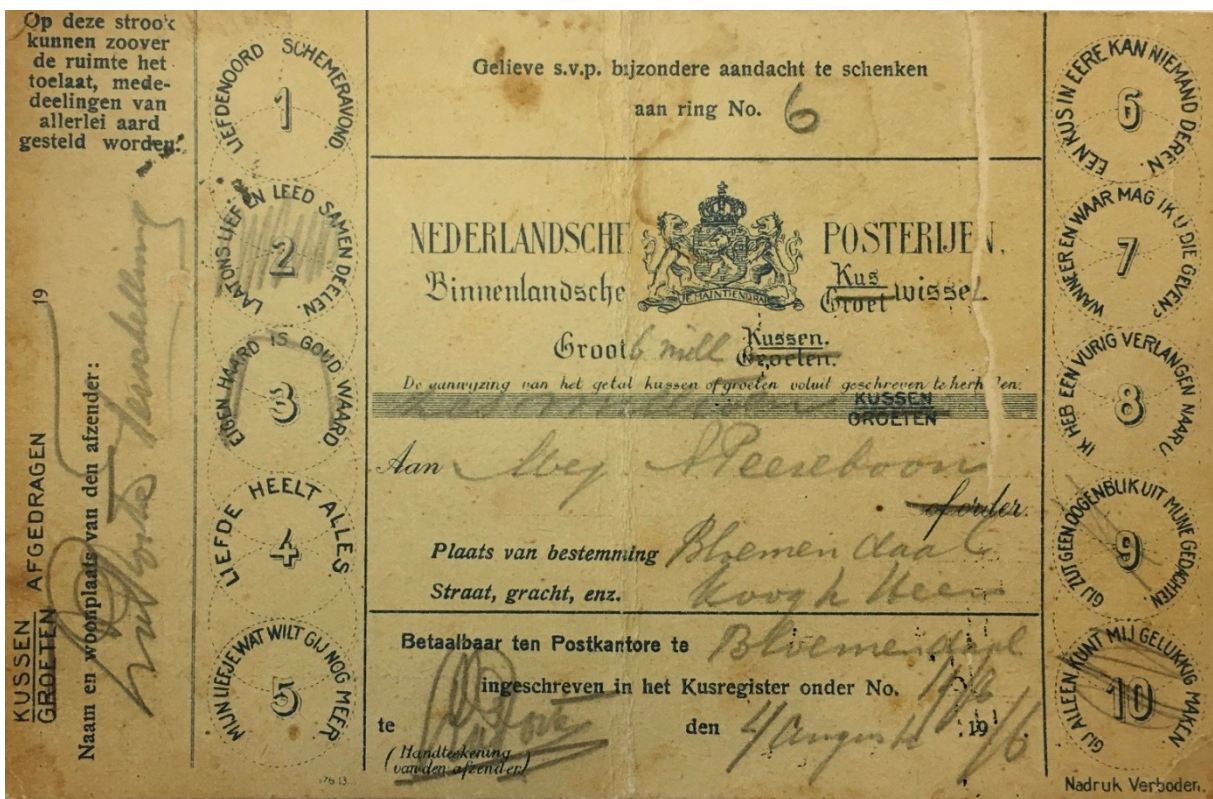 Op deze strook
kunnen zoover
de ruimte het
toelaat, mede-
deelingen van
allerlei aard
gesteld worden.
KUSSEN
GROETEN AFGEDRAGEN 19
Naam en woonplaats van den afzender:
Terschelling
1 LIEFDENOORD SCHEMERAVOND
2 LAAT ONS LIEF EN LEED SAMEN DEELEN
3 EIGEN HAARD IS GOUD WAARD
4 LIEFDE HEELT ALLES.
5 MIJN LIEFJE WAT WILT GIJ NOG MEER
Gelieve s.v.p. bijzondere aandacht te schenken
aan ring No. 6
NEDERLANDSCHE POSTERIJEN.
JE MAINTIENDRAI
Binnenlandsche Kus
Groet wissel
Groot 6 mill Kussen.
Groeten.
De aanwijzing van het getal kussen of groeten voluit geschreven te herhalen.
zes millioen KUSSEN
GROETEN
Aan Mej
of order.
Plaats van bestemming Bloemendaal
Straat, gracht, enz.
Betaalbaar ten Postkantore te Bloemendaal
ingeschreven in het Kusregister onder No.
te den 4 Augustus 1916
(Handteekening
van den afzender.)
6 EEN KUS IN EERE KAN NIEMAND DEREN.
7 WANNEER EN WAAR MAG IK U DIE GEVEN?
8 IK HEB EEN VURIG VERLANGEN NAAR U
9 GIJ ZIJT GEEN OOGENBLIK UIT MIJNE GEDACHTEN.
10 GIJ ALLEEN KUNT MIJ GELUKKIG MAKEN
Nadruk Verboden.